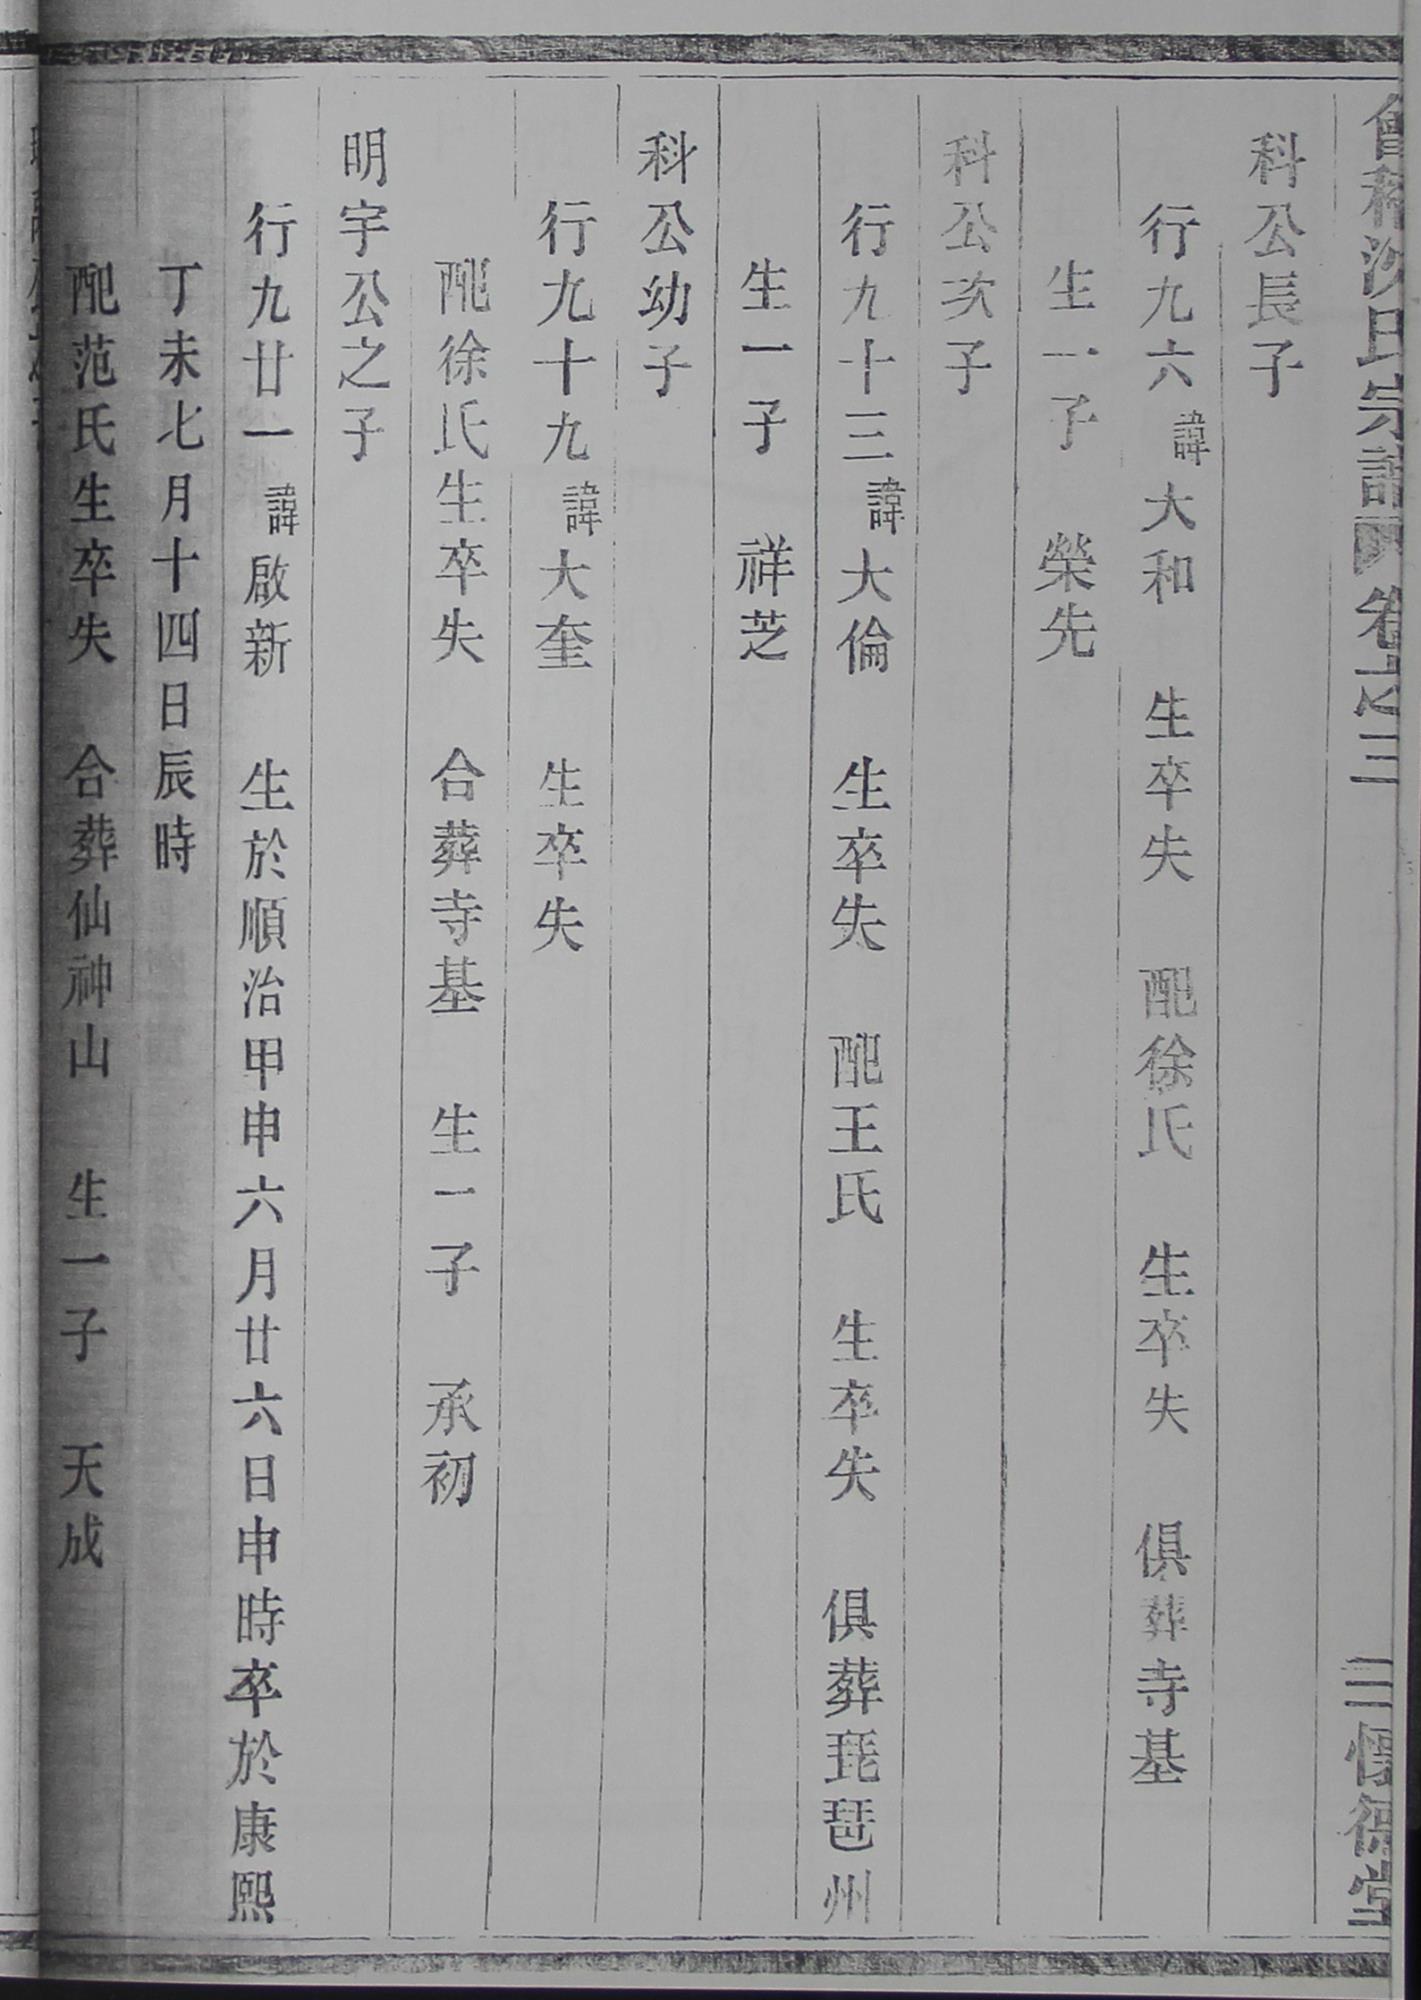 會稽沈氏宗譜 卷之三 三 懷德堂
科公長子
行九六諱大和 生卒失 配徐氏 生卒失 俱葬寺基
生一子 榮先
科公次子
行九十三諱大倫 生卒失 配王氏 生卒失 俱葬琵琶州
生一子 祥芝
科公幼子
行九十九諱大奎 生卒失
配徐氏生卒失 合葬寺基 生一子 承初
明宇公之子
行九廿一諱啟新 生於順治甲申六月廿六日申時卒於康熙
丁未七月十四日辰時
配范氏生卒失 合葬仙神山 生一子 天成